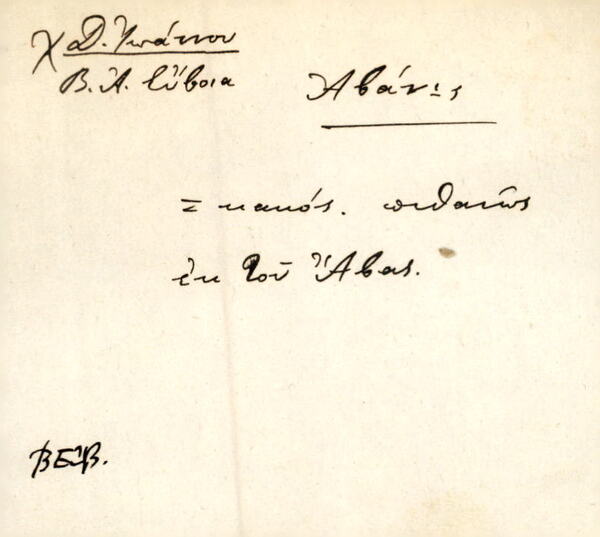 χ Δ. Ἰωάννου
Β. Ἀ. Εὔβοια
Ἀβάνις
= κακός. πιθανῶς
ἐκ τοῦ Ἄβας.
ΒΕΒ.